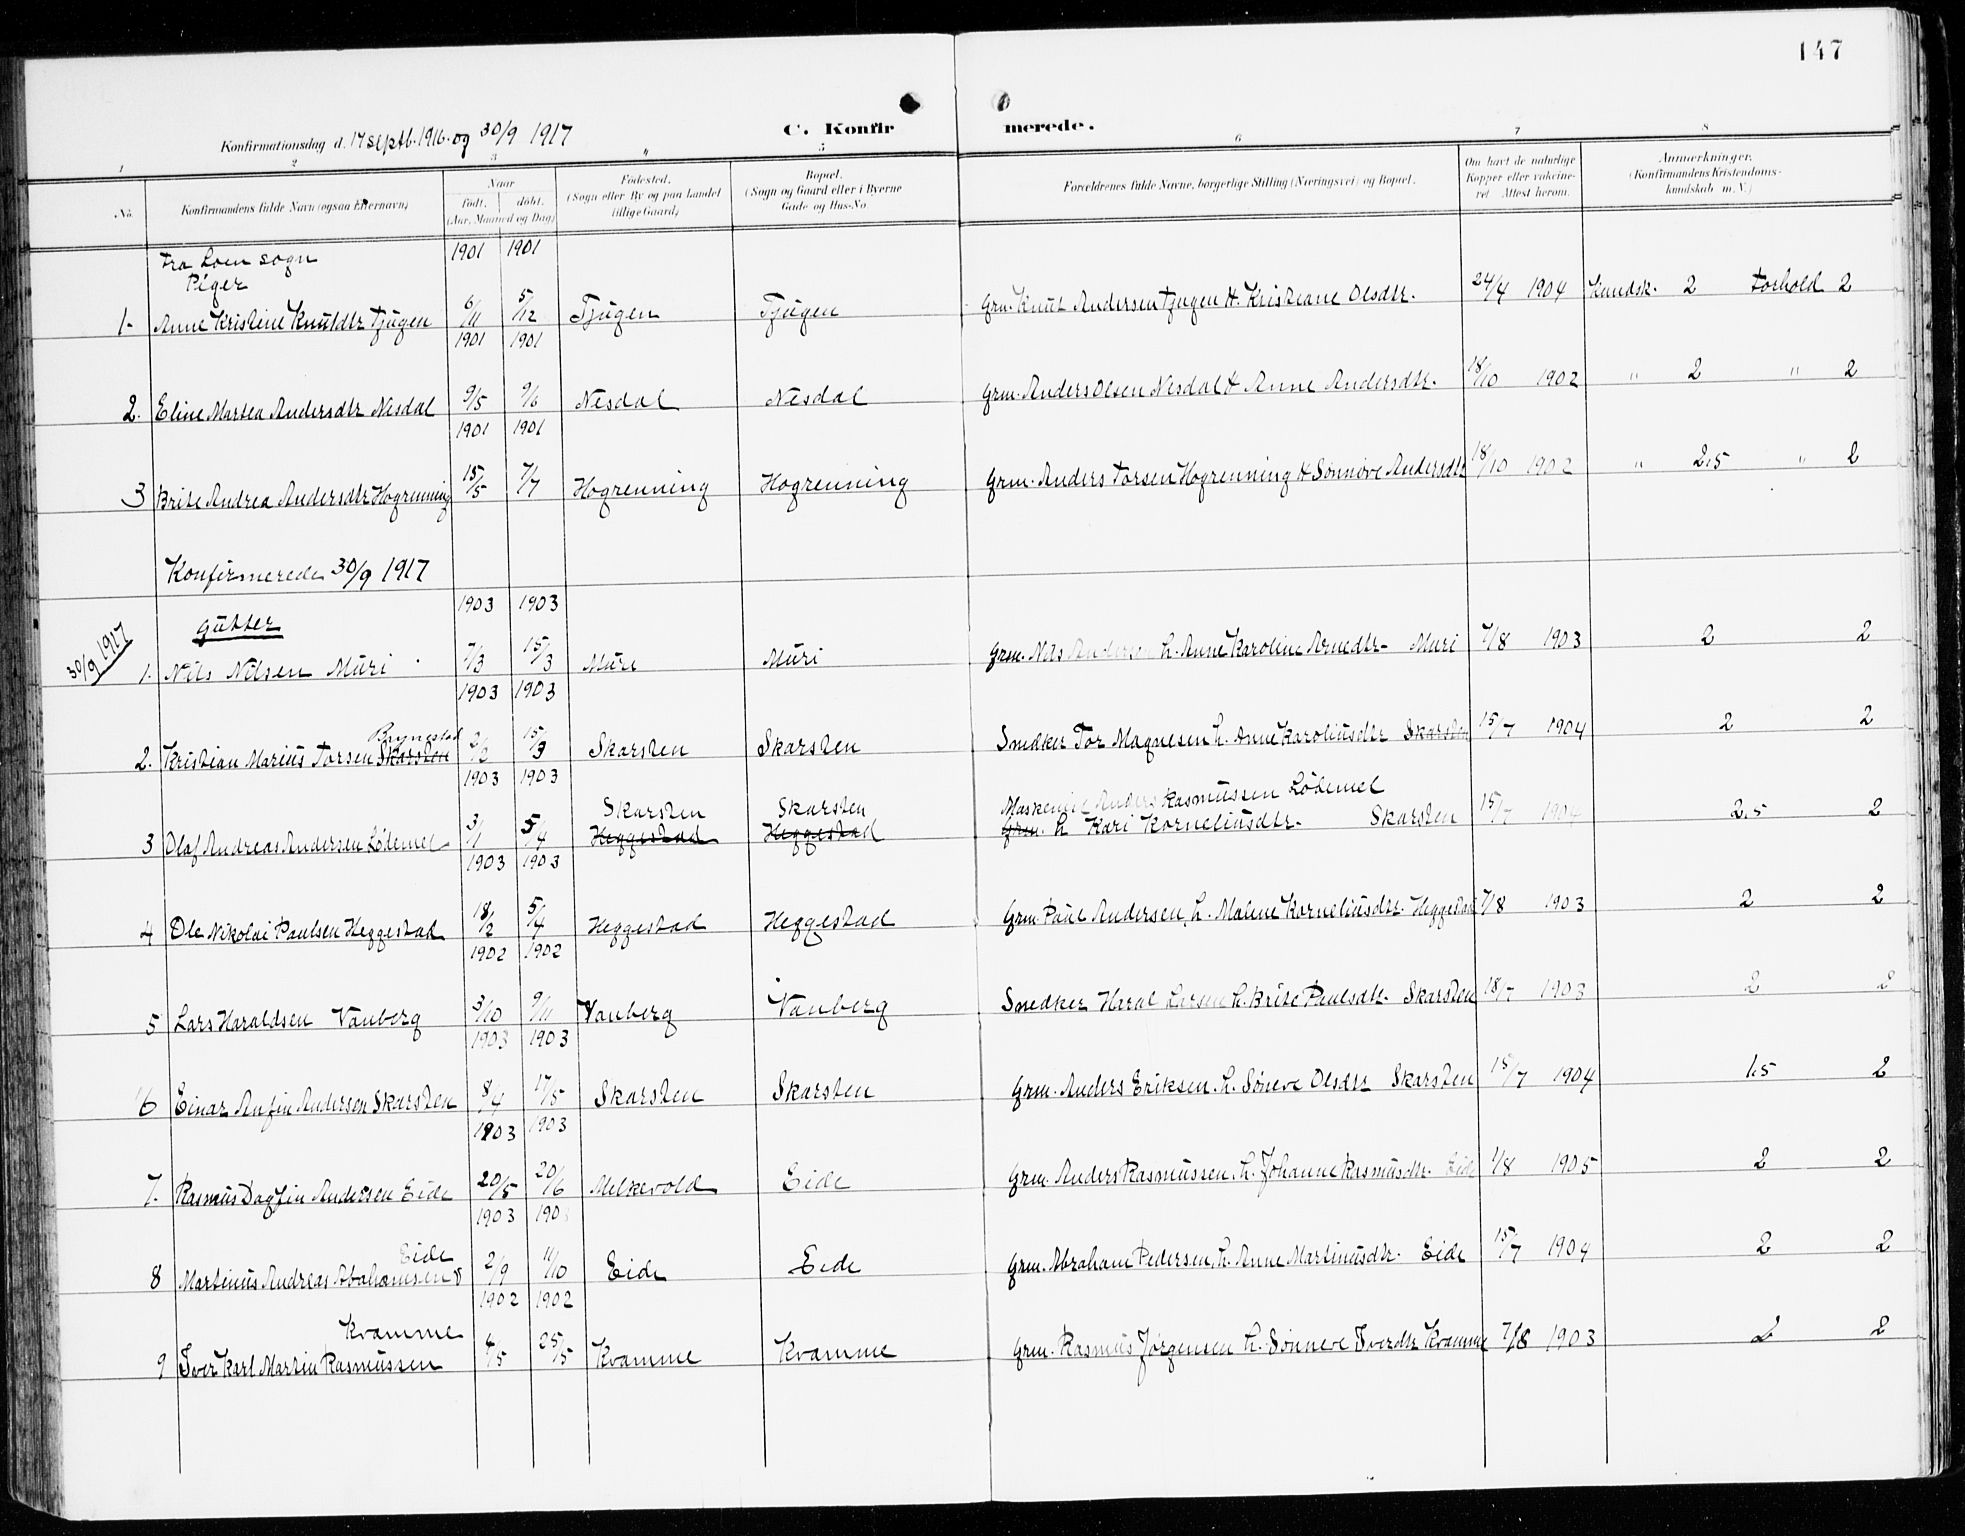 147
Konfirmationsdag d. 17 septb. 1916. og 30/9 1917
C. Konfirmerede.
1 2 3 " 5 6 7 8
No. Konfirmandens fulde Navn (ogsaa Efternavn) Naar født. døbt. (Aar, Maaned og Dag) Fødested. (Sogn eller By og paa Landet tillige Gaard) Bopæl. (Sogn og Gaard eller i Byerne Gade og Hus-No. Forældrenes fulde Navne, borgerlige Stilling (Næringsvei) og Bopæl. Om havt de naturlige Kopper eller vaccineret. Attest herom. Anmærkninger. (Konfirmandens Kristendomskundskab m. V.)
Fra Loen sogn 1901 1901
Piger
1. Anne Kristine Knutdtr Tjugen 6/11 5/12 Tjugen Tjugen Grm. Knut Andersen Tjugen H. Kristiane Olsdtr. 24/4 1904 Kundsk. 2 Forhold 2
1901 1901
2. Eline Martea Andersdtr Nesdal 9/5 9/6 Nesdal Nesdal Grm. Anders Olsen Nesdal H Anne Andersdtr. 18/10 1902 " 2 " 2
1901 1901
3 Brite Andrea Andersdtr Hogrenning 15/5 7/7 Hogrenning Hogrenning Grm. Anders Torsen Hogrenning H Sønnøve Andersdtr 18/10 1902 " 2,5 " 2
Konfirmerede 30/9 1917
1903 1903
Gutter
30/9 1917 1. Nils Nilsen Muri 7/3 15/3 Muri Muri Grm. Nils Andersen h. Anne Karoline Arnedtr- Muri 7/8 1903 2 2
1903 1903
Brynestad
2. Kristian Marius Torsen Skarsten 2/2 15/3 Skarsten Skarsten Snedker Tor Magnesen h. Anne Karoliusdtr Skarsten 15/7 1904 2 2
1903 1903
Skarsten Skarsten Anders Rasmussen Lødemel
3 Olaf Andreas Andersen Lødemel 3/1 5/4 Heggestad Heggestad Grm. h Kari Korneliusdtr. Skarsten 15/7 1904 2,5 2
1903 1903
4 Ole Nikolai Paulsen Heggestad 18/2 5/4 Heggestad Heggestad Grm. Paul Andersen, h. Malene Korneliusdtr. Heggestad 7/8 1903 2 2
1902 1902
5 Lars Haraldsen Vanberg 3/10 9/11 Vanberg Vanberg Snedker Haral Larsen h. Brite Paulsdtr. Skarsten 18/7 1903 2 2
1903 1903
6 Einar Anfin Andersen Skarsten 8/4 17/5 Skarsten Skarsten Grm. Anders Eriksen h. Søneve Olsdtr Skarsten 15/7 1904 1,5 2
1903 1903
7. Rasmus Dagfin Andersen Eide 20/5 20/6 Melkevold Eide Grm. Anders Rasmussen, h. Johanne Rasmusdtr. Eide 1/8 1905 2 2
1903 1903
Eide
8 Martinus Andreas Abahamsen 2/9 11/10 Eide Eide Grm. Abraham Pedersen, h. Anne Martinusdtr. Eide 15/7 1904 2 2
1902 1902
Kvamme
9 Iver Karl Martin Rasmussen 4/5 25/5 Kvamme Kvamme Grm. Rasmus Jørgensen h. Sønneve Iverdtr Kvamme 7/8 1903 2 2